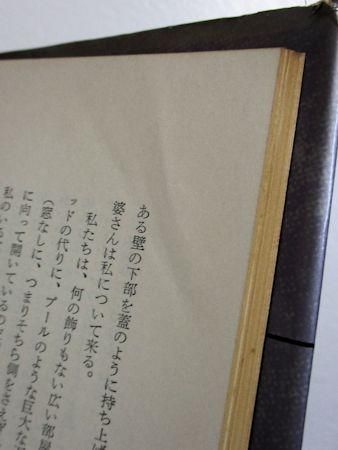 ある壁の下部を蓋のように持ち上げ
婆さんは私について来る。
私たちは、何の飾りもない広い部屋
ッドの代りに、プールのような巨大な
(窓なしに、つまりそちら側をさえぎ
に向って開いているの
私のいる